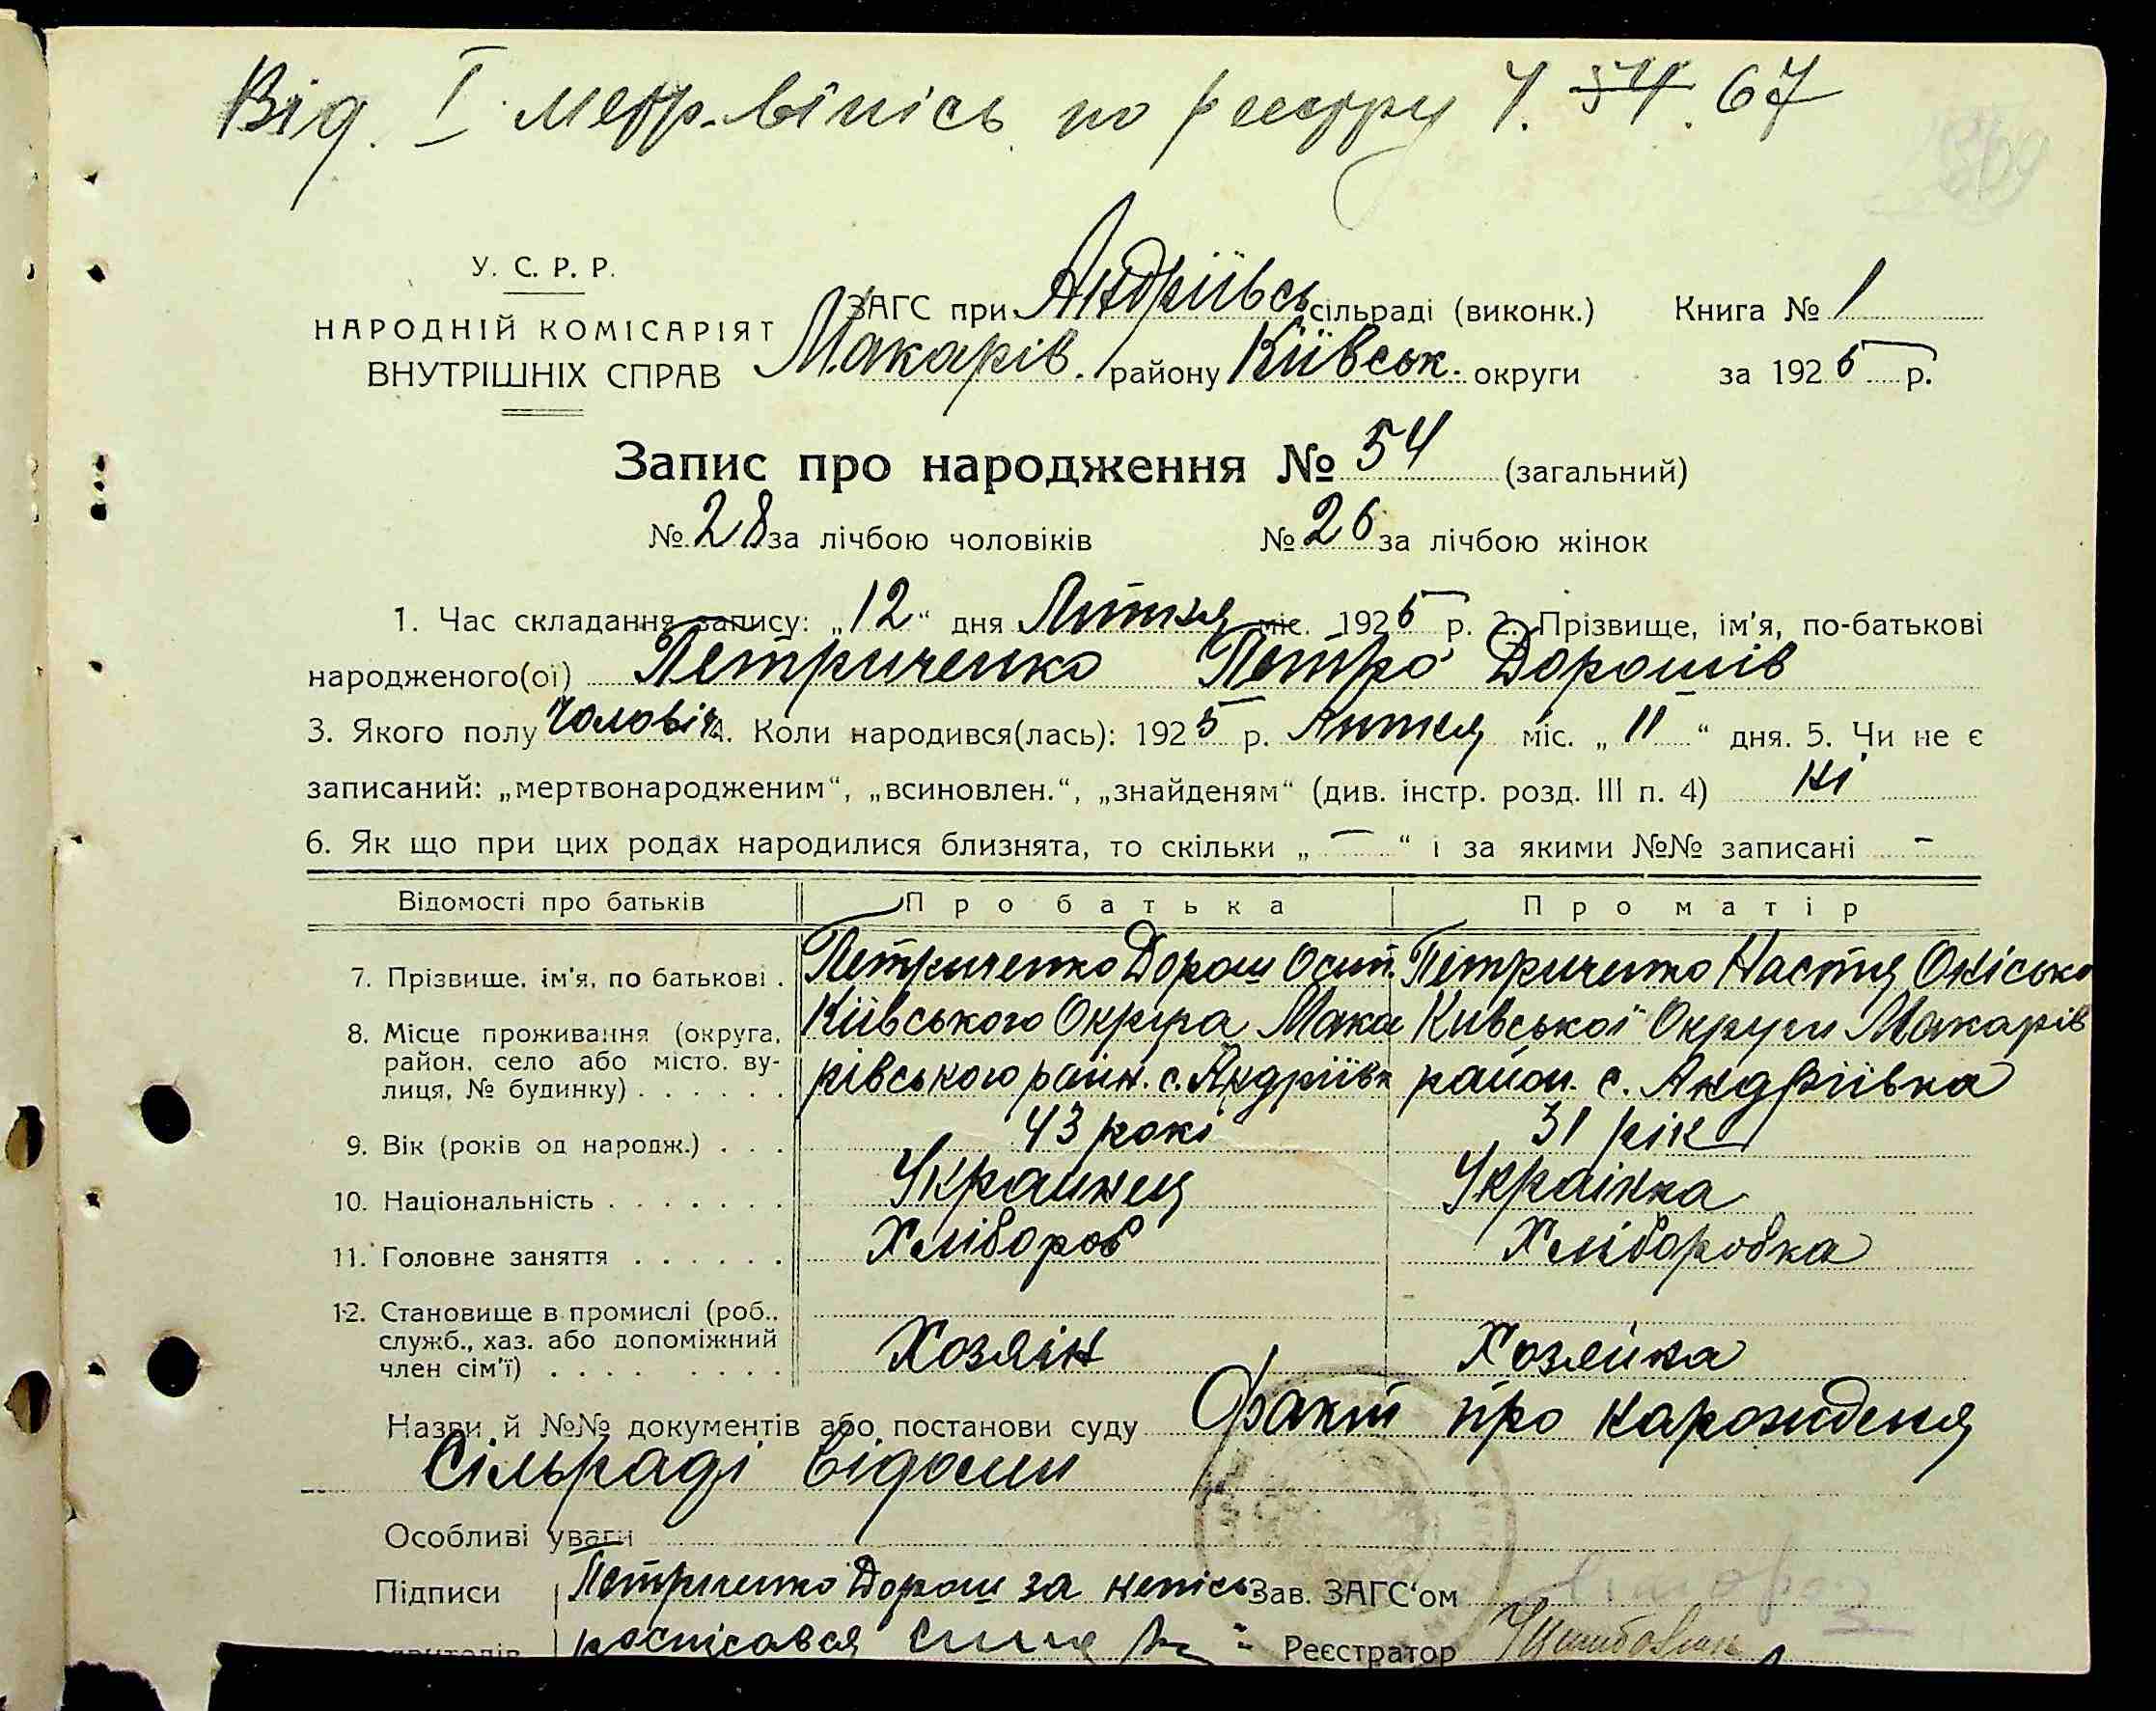 Від. I метр. вíпісь по реєстру Ч. 54. 67
У. С. Р. Р.
НАРОДНІЙ КОМІСАРІЯТ
ВНУТРІШНІХ СПРАВ
ЗАГС при Андріївсь сільраді (виконк.) Книга № 1
Макарів. району Київськ. округи за 1925 р.
Запис про народження № 54 (загальний)
№ 28 за лічбою чоловіків № 26 за лічбою жінок
1. Час складання запису: „12“ дня Липня міс. 1925 р. 2. Прізвище, ім'я, по-батькові
народженого(ої) Петриченко Петро Дорошів
3. Якого полу Чоловіч. 4. Коли народився(лась): 1925 р. Липня міс. „11“ дня. 5. Чи не є
записаний: „мертвонародженим“, „всиновлен.“, „знайденям“ (див. інстр. розд. III п. 4) Ні
6. Як що при цих родах народилися близнята, то скільки „—“ і за якими №№ записані –
Відомості про батьків Про батька Про матір
7. Прізвище, ім'я, по батькові . Петриченко Дорош Осип. Петриченко Настя
8. Місце проживання (округа, район, село або місто, ву-
лиця, № будинку) . . . . . .
Київського Округа Мака
рівського райн. с. Андріївк
Київської Округи Макарів
район. с. Андріївка
9. Вік (років од народж.) . . . 43 рокі 31 рік
10. Національність . . . . . . . Украинец Україінка
11. Головне заняття . . . . . . Хлібороб Хліборобка
12. Становище в промислі (роб.,
служб., хаз. або допоміжний
член сім'ї) . . . . . . . . Хозяїн Хозяйка
Назви й №№ документів або постанови суду Факт про нарождення
Сільраді відомий
Особливі уваги
Підписи Петриченко Дорош за непісь Зав. ЗАГС'ом
росписався Реєстратор